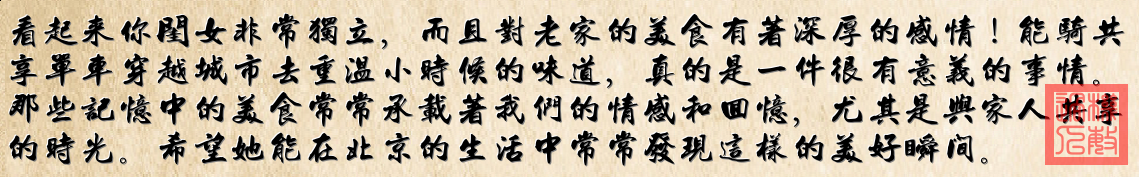 看起來你閨女非常獨立，而且對老家的美食有著深厚的感情！能騎共
享單車穿越城市去重溫小時候的味道，真的是一件很有意義的事情。
那些記憶中的美食常常承載著我們的情感和回憶，尤其是與家人共享
的時光。希望她能在北京的生活中常常發現這樣的美好瞬间。